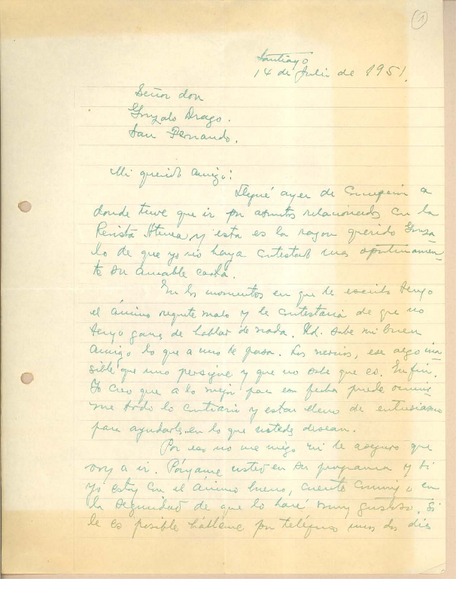 1
Santiago
14 de Julio de 1951.
Señor don
Gonzalo Drago.
San Fernando.
Mi querido amigo:
Llegué ayer de Concepción a
donde tuve que ir por asuntos relacionados con la
Revista Atenea y esta es la razón querido Gonza
lo de que yo no haya contestado mas oportunamen
te su amable carta.
En los momentos en que le escribo tengo
el ánimo regute malo y le contestaria de que no
tengo ganas de hablar de nada. Ud. sabe mi buen
amigo lo que a uno le pasa. Los nervios, ese algo in
sible que uno persigue y que no sabe que es. En fin.
Yo creo que a lo mejor para esa fecha puede
me todo lo contrario y estar lleno de entusiasmo
para ayudarles en lo que ustedes desean.
Por eso no me niego ni le aseguro que
voy a ir. Póngame usted en su programa y si
yo estoy con el ánimo bueno, cuente conmigo en
la seguridad de que lo haré muy gustoso. Si
le es posible hábleme por teléfono unos dos dias